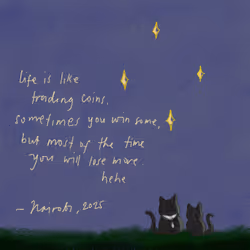 life is like
trading coins.
sometimes you win some,
but most of the time
you will lose more.
hehe
— Nairobi, 2025